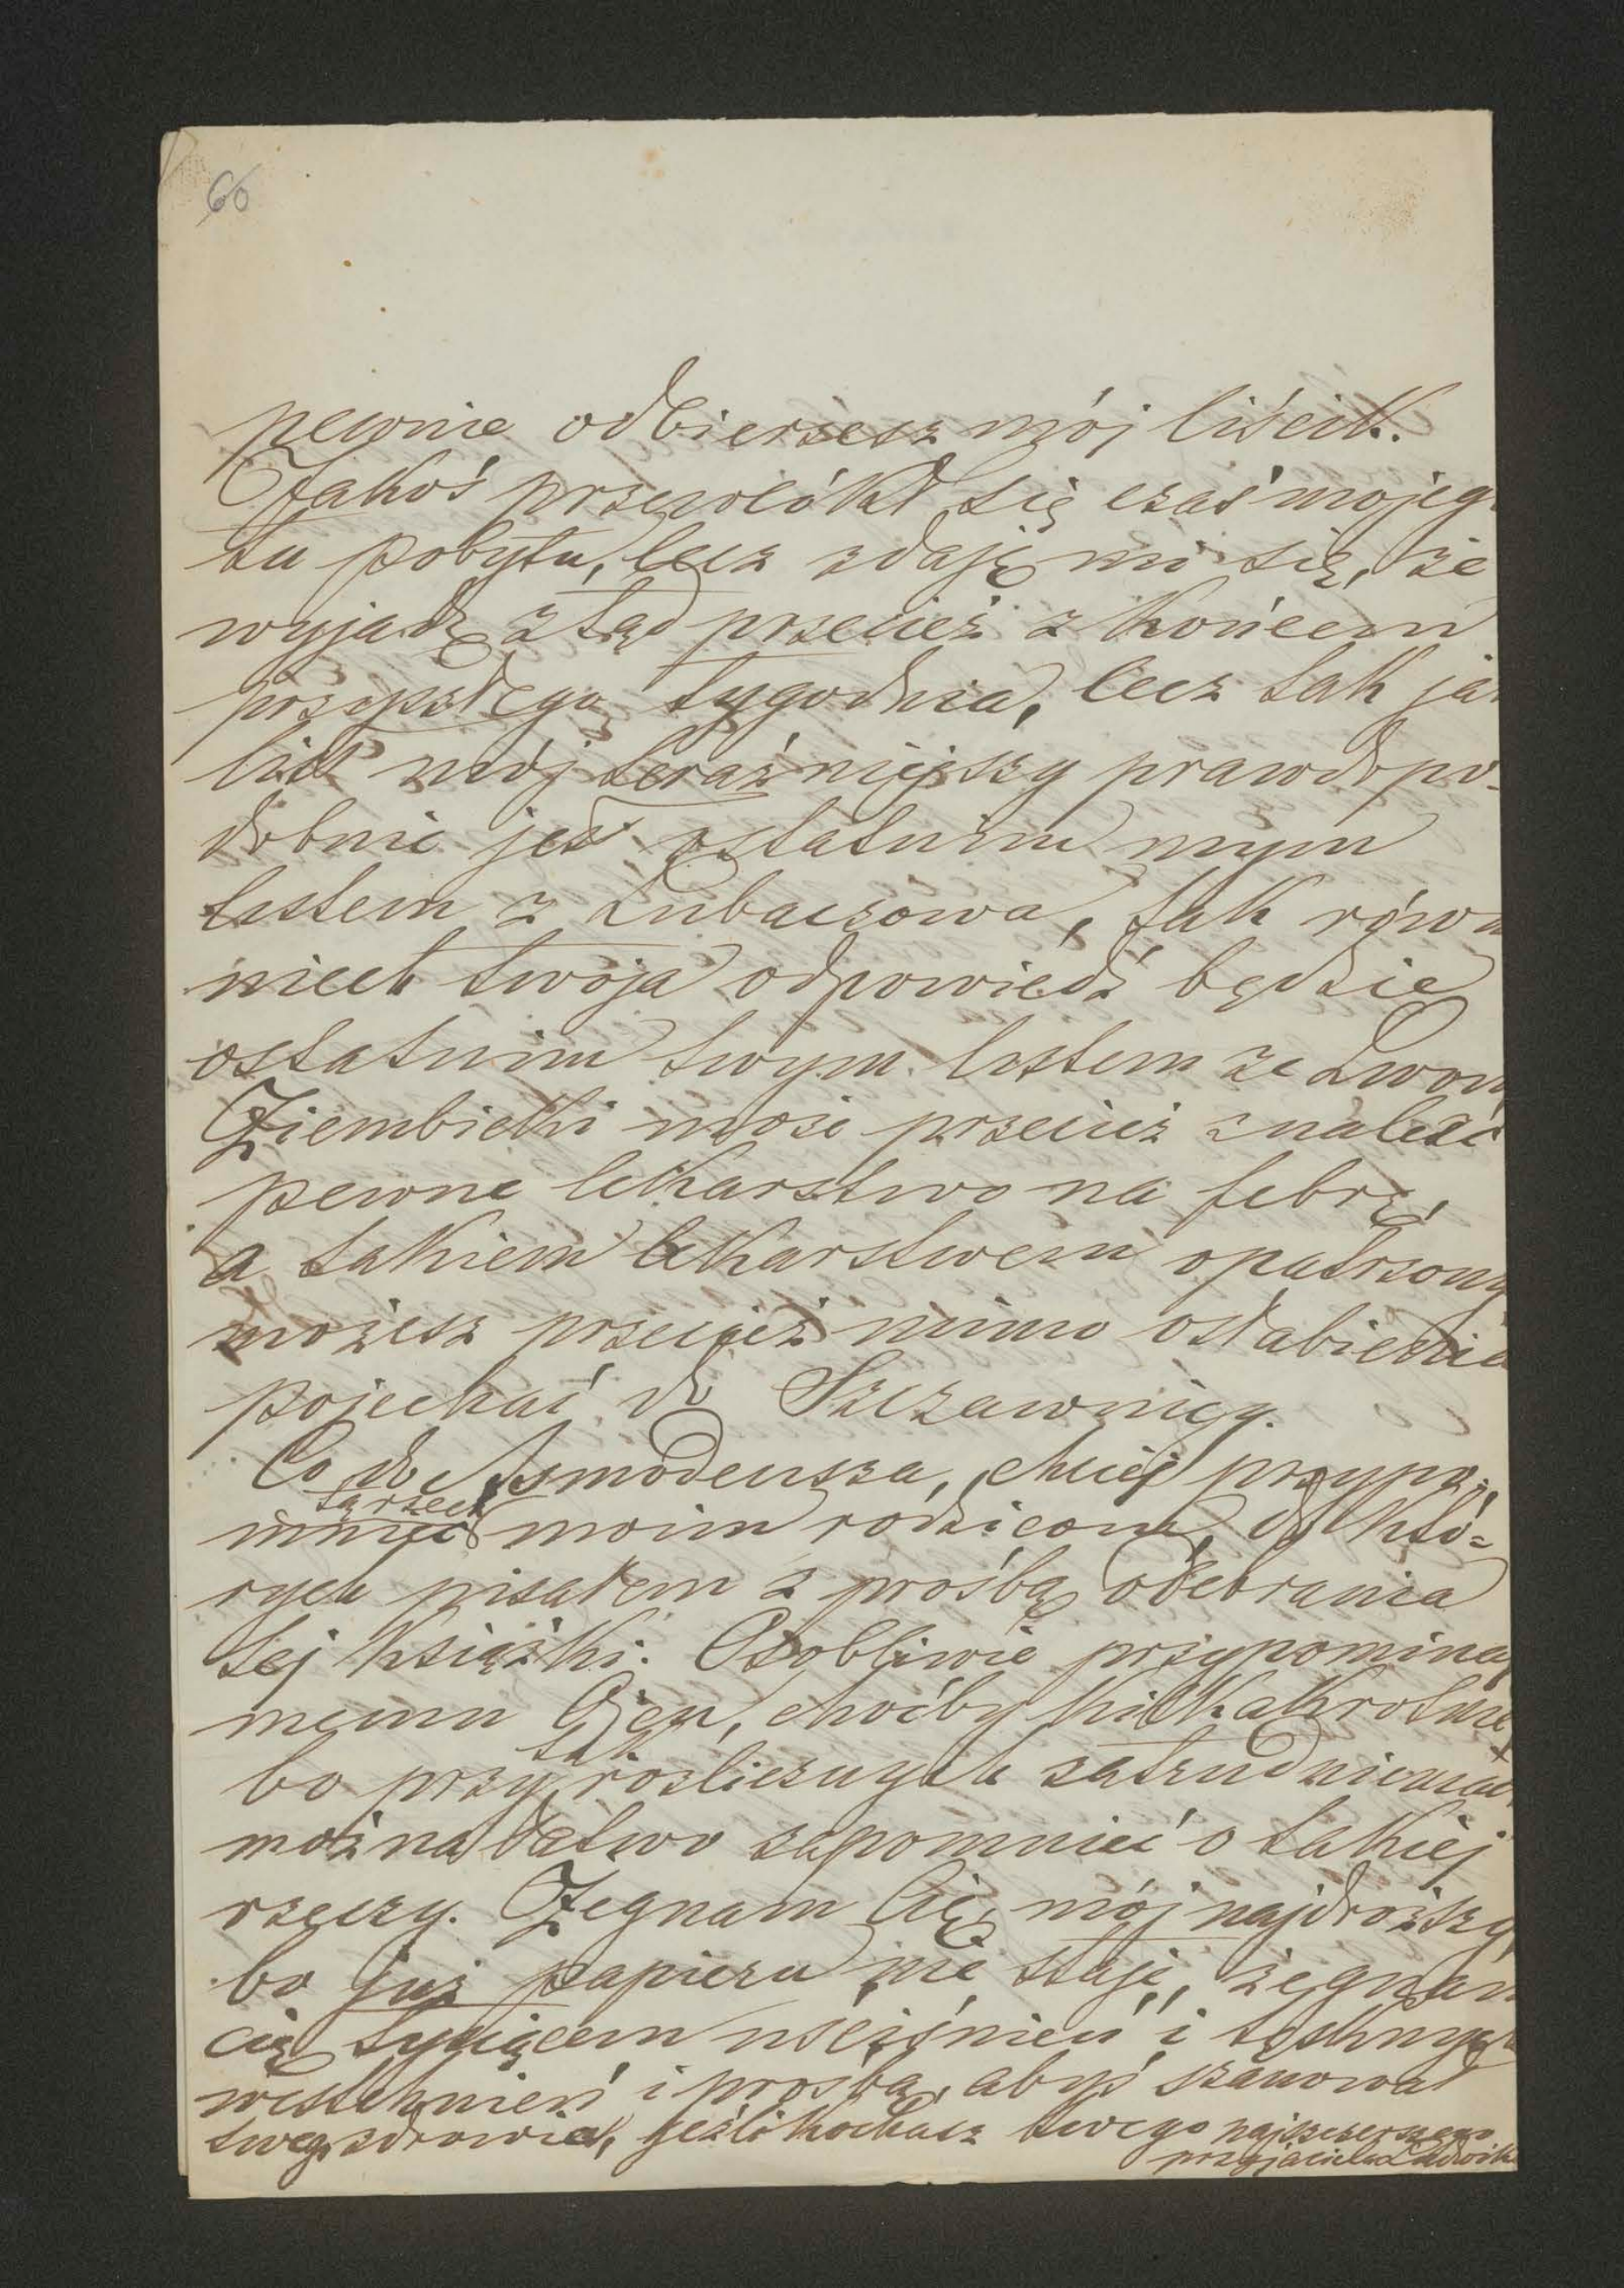 60
pewnie odbierzesz mój liścik.
Jakoś przewlókł się czas mojego
tu pobytu, lecz zdaję mi się, że
wyjadę ztąd przecież z końcem
przyszłego tygodnia, lecz tak ja
list mój teraźniejszy prawdopo-
dobnie jest ostatnim mym
listem z Lubaczowa, tak równ
niech twoja odpowiedź będzie
ostatnim twym listem ze Lwow
Ziembicki może przecież znaleść
pewne lekarstwo na febrę,
a takiem lekarstwem opatrzony
możesz przecież mimo osłabienia
pojechać do Szczawnicy.
Co do Asmodeusza, chciej przypo-
tę rzecz
mnieć moim rodzicom, do któ=
rych pisałem z prośbą odebrania
tej książki. Osobliwie przypominaj
memu Ojcu, choćby kilkakrotnie
tak
bo przy rozlicznych zatrudnieniach
można łatwo zapomnieć o takiej
rzeczy. Żegnam Cię, mój najdroższy,
bo już papieru nie staje, żegnam
cię tysiącem uściśnień i tęsknych
westchnień i prośbą, abyś szanował
twego zdrowia, jeźli kochasz twego najszczerszego
przyjaciela Ludwika